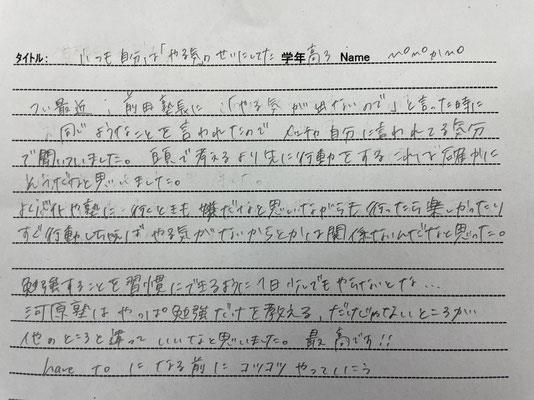 タイトル: いつも自分は「やる気」のせいにしてた 学年 高3 Name
つい最近、前田塾長に「やる気が出ないので」と言った時に
同じようなことを言われたので メッチャ自分に言われてる気分
で聞いていました。頭で考えるより先に行動をする これは確かに
そうだなと思いました。
よくバイトや塾に行くときも嫌だなと思いながらも行ったら楽しかったり
すぐ行動しちゃえばやる気がないからとかは関係ないんだなと思った。
勉強することを習慣にできるように1日少しでもやらないとな...
河原塾はやっぱ勉強だけを教える、だけじゃないところが
他のところと違っていいなと思いました。最高です!!
have to になる前にコツコツやっていこう